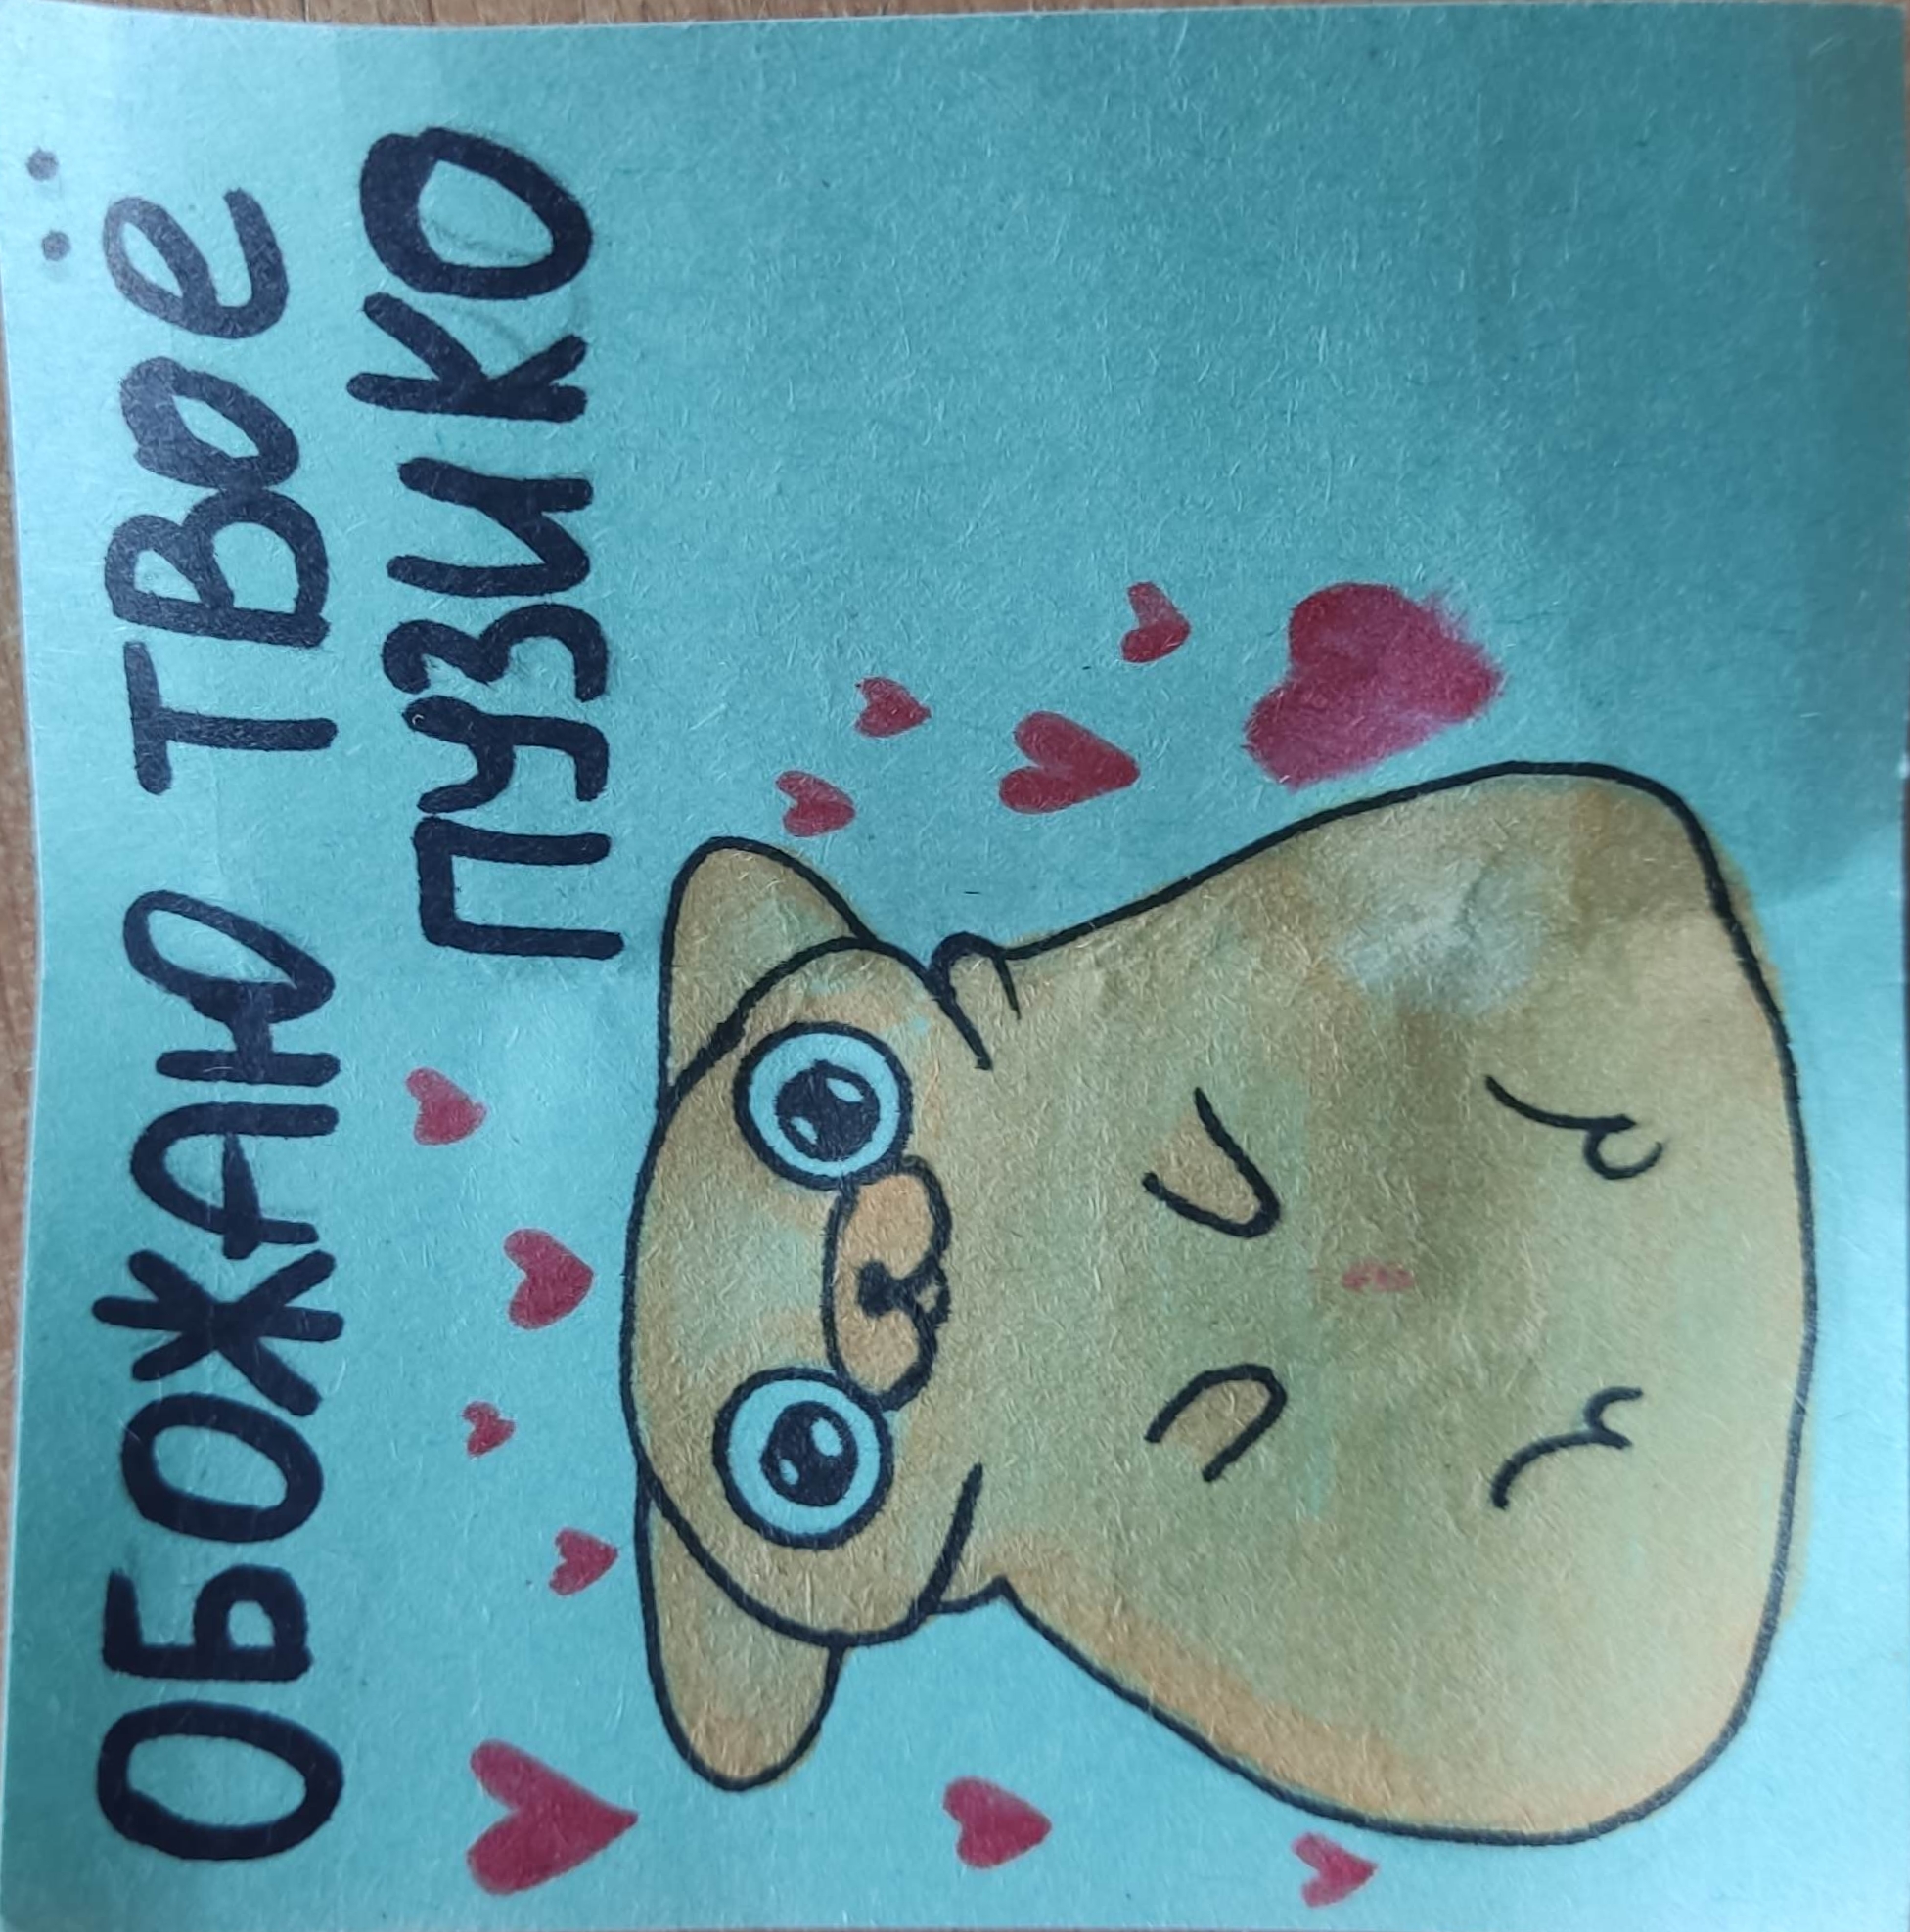 ОБОЖАЮ ТВОЁ
ПУЗИКО